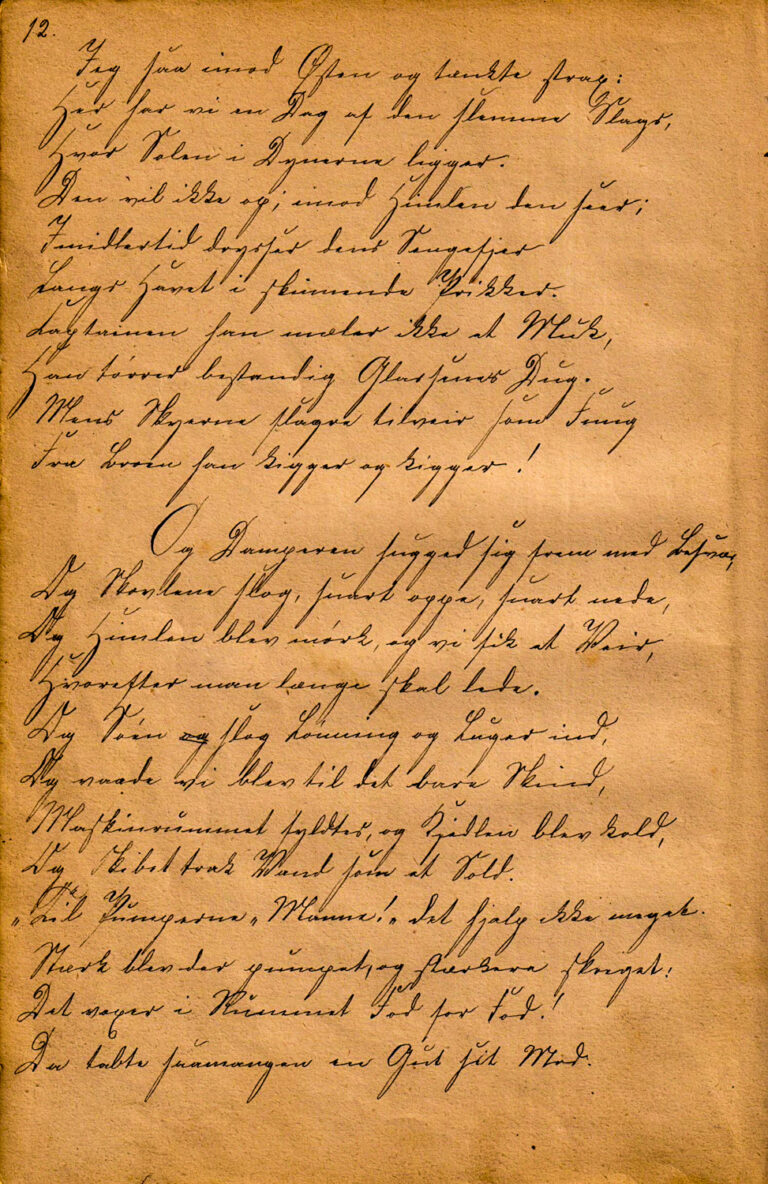 12.
Jeg saa imod Østen og tænkte strax:
Her har vi en Dag af den slemme Slags,
Hvor Solen i Dynerne ligger.
Den vil ikke op; imod Himlen den seer;
Imidlertid drysser dens Sengefjer
Langs Havet i skummende Prikker.
Kaptainen han mæler ikke et Muk,
Han tørrer bestandig Glassenes Dug.
Mens Skyerne flagre tilveir som Fnug
Fra Broen han kigger og kigger!
Og Damperen hugged sig frem med Besvær,
Og Skovlene slog, snart oppe, snart nede,
Og Himlen blev mørk, og vi fik et Veir,
Hvorefter man længe skal lede.
Og Søen og slog Lønning og Luger ind,
Og vaade vi blev til det bare Skind,
Maskinrummet fyldtes, og Kjedlen blev kold,
Og Skibet trak Vand som et Sold.
"Til Pumperne" Manne!" det hjalp ikke meget.
Stærk blev der pumpet, og stærkere skreget:
Det voxer i Rummet Fod for Fod!
Da tabte saamangen en Gut sit Mod.